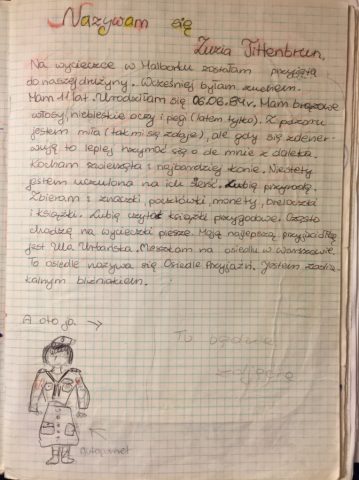 Nazywam się
Zuzia Tittenbrun.
Na wycieczce w Malborku zostałam przyjęta
do naszej drużyny. Wcześniej byłam zuchem.
Mam 11 lat. Urodziłam się 06.06.84r. Mam brązowe
włosy, niebieskie oczy i piegi (latem tylko). Z pozoru
jestem miła (tak mi się zdaje), ale gdy się zdener-
wuję to lepiej trzymać się o de mnie z daleka.
Kocham zwierzęta i najbardziej konie. Niestety
jestem uczulona na ich sierść. Lubię przyrodę.
Zbieram: znaczki, pocztówki, monety, breloczki
i książki. Lubię czytać książki przygodowe. Często
chodzę na wycieczki piesze. Moją najlepszą przyjaciółką
jest Ula Urbańska. Mieszkam na osiedlu w Warszawie.
To osiedle nazywa się Osiedle Przyjaźń. Jestem zodia-
kalnym bliźniakiem.
A oto ja →
Tu będzie
zdjęcie
autoportret